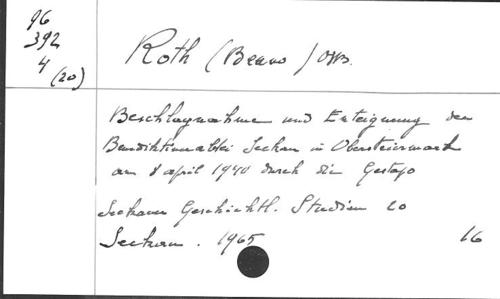 96
392
4
(20)
Roth (Benno) OSB.
Beschlagnahme und Enteignung der
Benediktinerabtei Seckau in Obersteiermark
am 8 april 1940 durch die Gestapo
Seckauer Geschichtl. Studien 20
Seckau. 1965
16